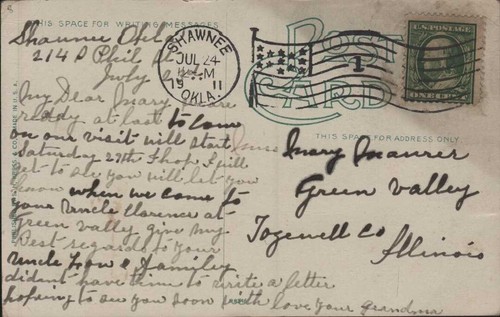 THIS SPACE FOR WRITING MESSAGES
Shawnee Okla
214 S Phil St
July
My Dear Mary we are
ready at last to come
on our visit will start
Saturday 29th I hope I will
get to see you will let you
know when we come to
your Uncle Clarence at
Green valley give my
Best regards to your
Uncle & family
didn't have time to write a letter
hoping to see you soon with love your Grandma
SHAWNEE
JUL 24
M
1911
OKLA.
1
POST
CARD
U.S. POSTAGE
ONE CENT
THIS SPACE FOR ADDRESS ONLY
Miss Mary Maurer
Green Valley
Tazewell Co
Illinois